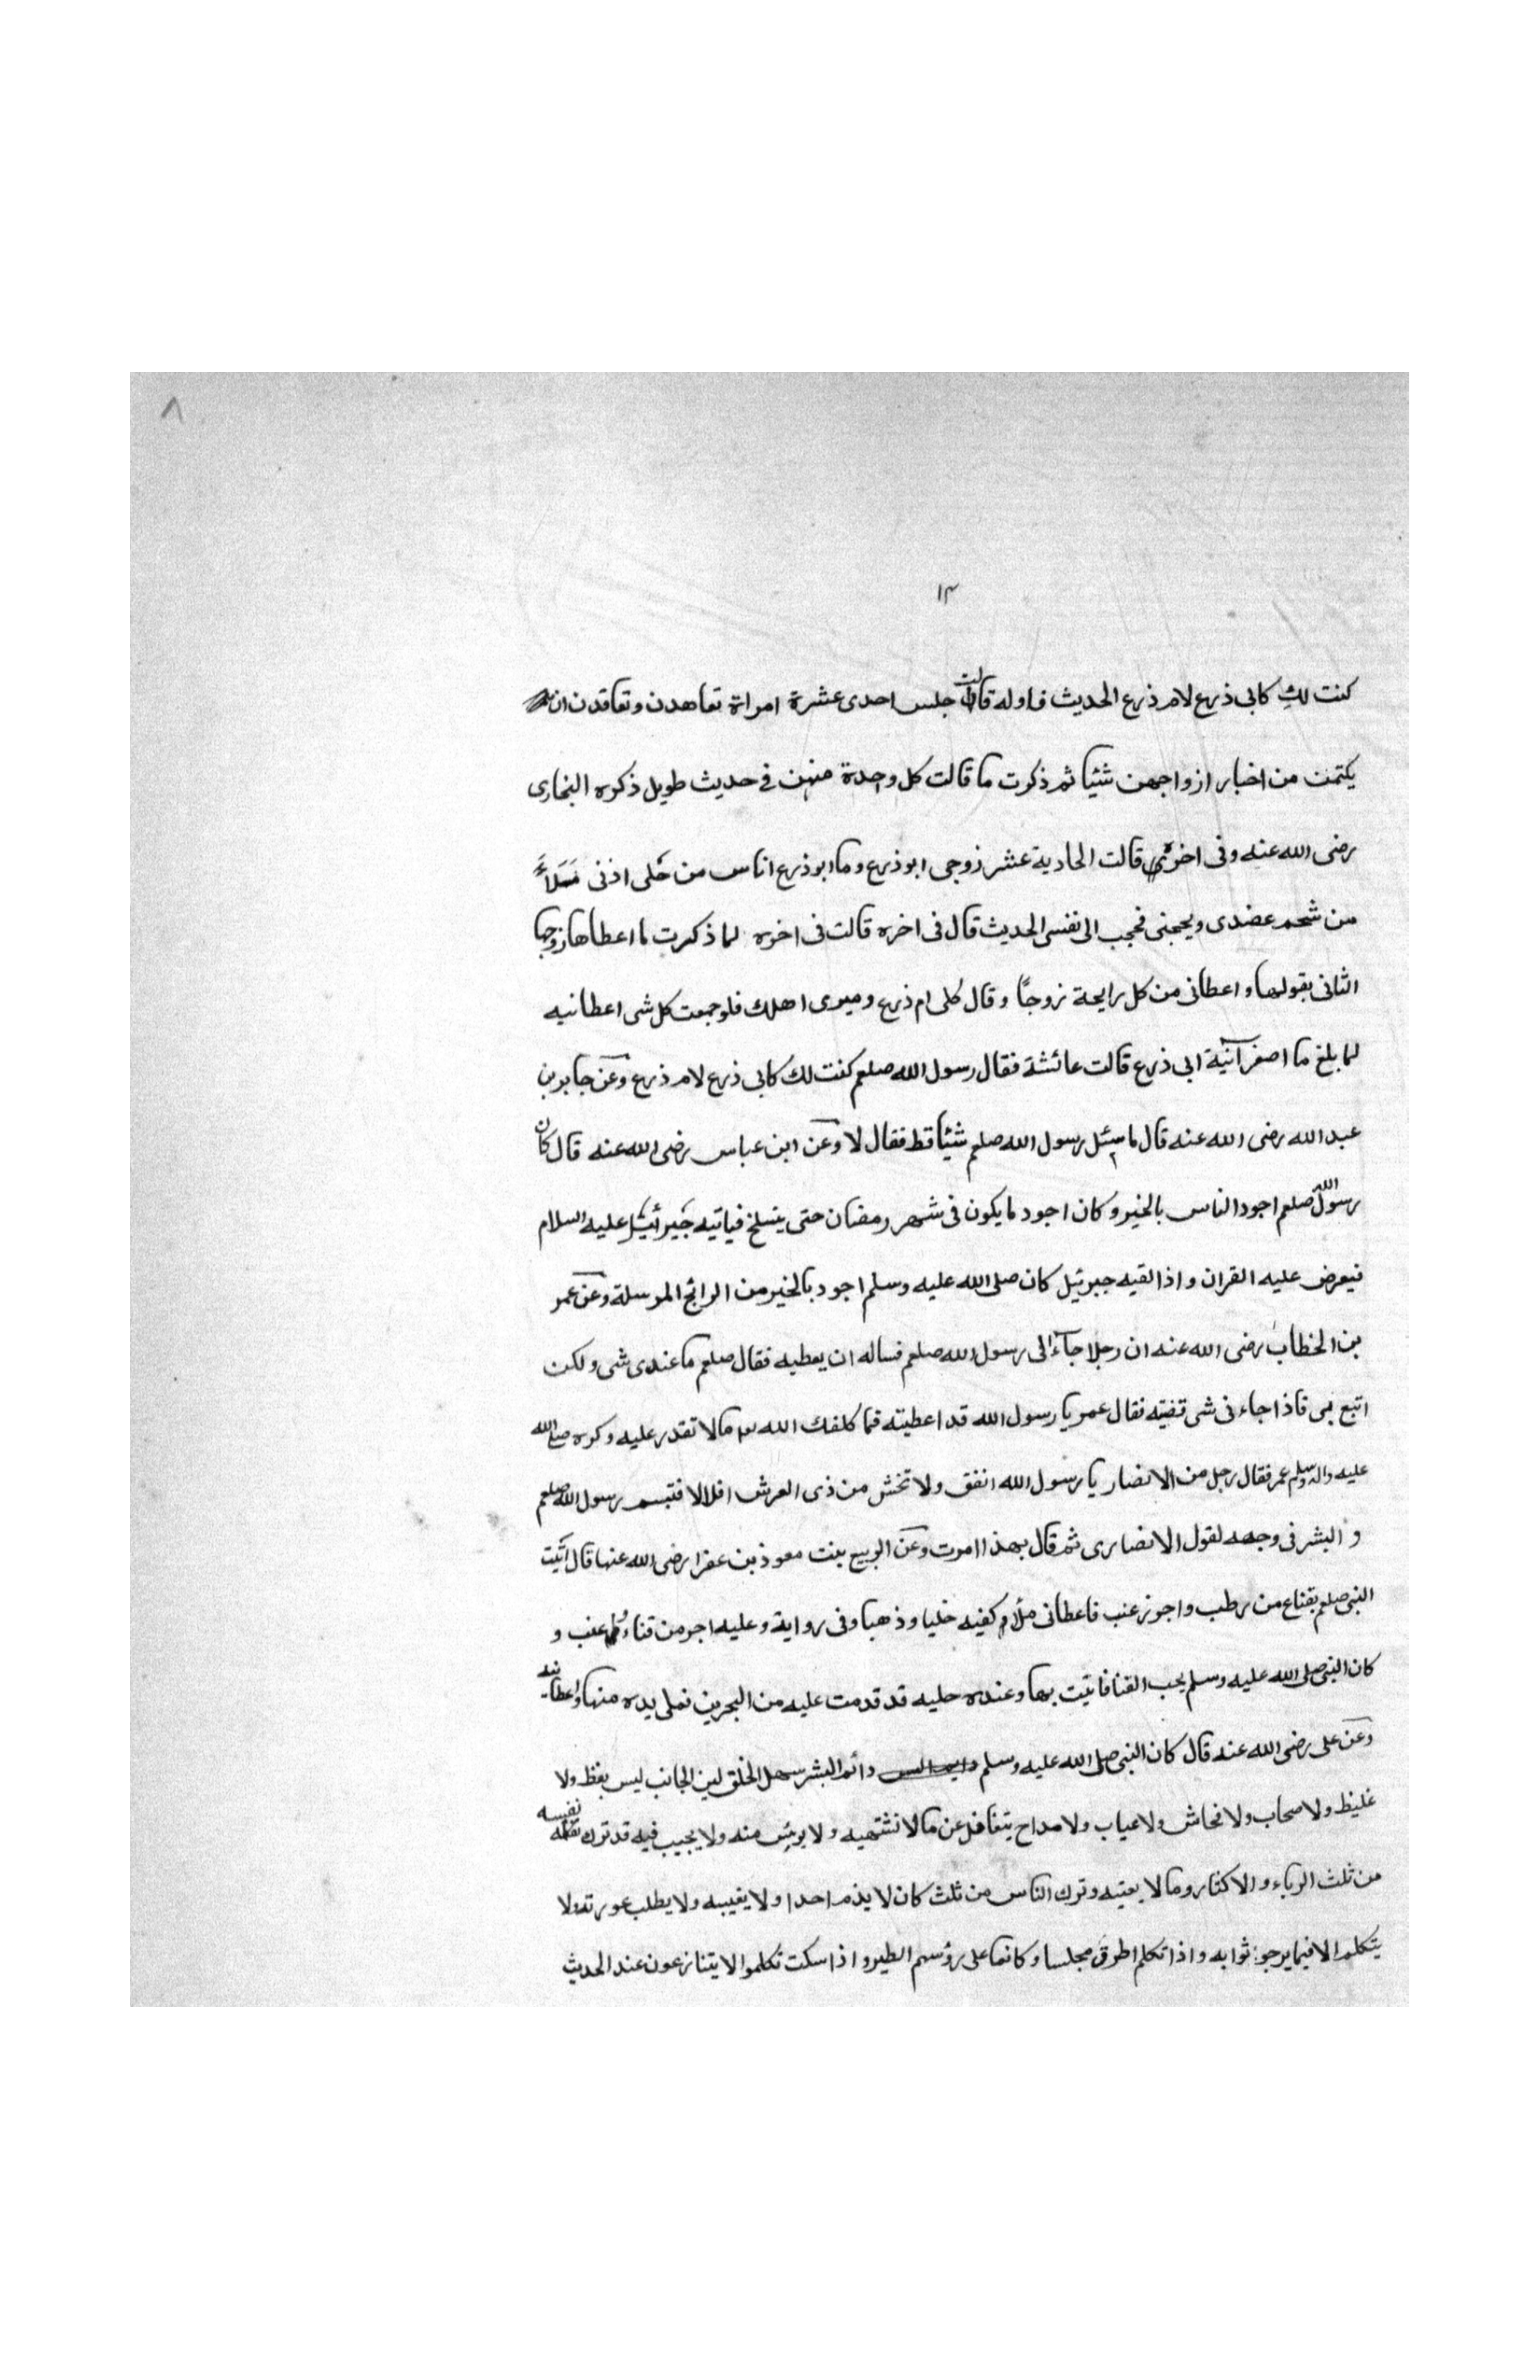 ٨
١٣
كنت لكِ كابى ذرع لام ذرع الحديث فاوله قالت جلس احدى عشرة امراة تعاهدن وتعاقدن ان
يكتمن من اخبار ازواجهن شيئا ثم ذكرت ما قالت كل واحدة منهن فى حديث طويل ذكره البخارى
رضى الله عنه وفى اخره قالت الحادية عشر زوجى ابو ذرع وما ابو ذرع اناس من حُلى اذنى مَلَاءَ
من شحم عضدى وبجحنى فجحب الى نفسى الحديث قال فى اخره قالت فى اخره لما ذكرت ما اعطاها زوجها
الثانى بقولها واعطانى من كل رايحة زوجًا وقال كلى ام ذرع وميرى اهلك فلو جمعت كل شى اعطانيه
لما بلغ ما اصغر آنية ابى ذرع قالت عائشة فقال رسول الله صلعم كنت لك كابى ذرع لام ذرع وعن جابر بن
عبد الله رضى الله عنه قال ما سئل رسول الله صلعم شيئا قط فقال لا وعن ابن عباس رضى الله عنه قال كان
رسول الله صلعم اجود الناس بالخير وكان اجود ما يكون فى شهر رمضان حتى ينسلخ فياتيه جبرائيل عليه السلام
فيعرض عليه القران واذا لقيه جبرئيل كان صلى الله عليه وسلم اجود بالخير من الرائح المرسلة وعن عمر
بن الخطاب رضى الله عنه ان رجلا جآء الى رسول الله صلعم فساله ان يعطيه فقال صلعم ما عندى شى ولكن
اتبع بى فاذا جاء فى شى قضيته فقال عمر يا رسول الله قد اعطيته فما كلفك الله ما لا تقدر عليه وكره صلى الله
عليه واله وسلم عمر فقال رجل من الانصار يا رسول الله انفق ولا تخش من ذى العرش اقلالا فتبسم رسول الله صلعم
والبشر فى وجهه لقول الانصارى ثم قال بهذا امرت وعن الربيع بنت معوذ بن عفرا رضى الله عنها قال اتيت
النبى صلعم بقناع من رطب واجر زغب فاعطانى ملأ كفيه حليا وذهبا وفى رواية وعليه اجر من قثاء زغب و
كان النبى صلى الله عليه وسلم يحب القثا فاتيت بها وعنده حليه قد قدمت عليه من البحرين فملى يده منها واعطانيه
وعن على رضى الله عنه قال كان النبى صلى الله عليه وسلم دائم البشر سهل الخلق لين الجانب ليس بفظ ولا
غليظ ولا صحاب ولا فحاش ولا عياب ولا مداح يتغافل عن ما لا تشتهيه ولا يوئس منه ولا يجيب فيه قد ترك نفسه
من ثلث الرياء والاكثار وما لا يعنيه وترك الناس من ثلث كان لا يذم احدا ولا يغيبه ولا يطلب عورته ولا
يتكلم الا فيما يرجو ثوابه واذا تكلم اطرق مجلساوه كانما على رؤسهم الطير واذا سكت تكلموا لا يتنازعون عند الحديث